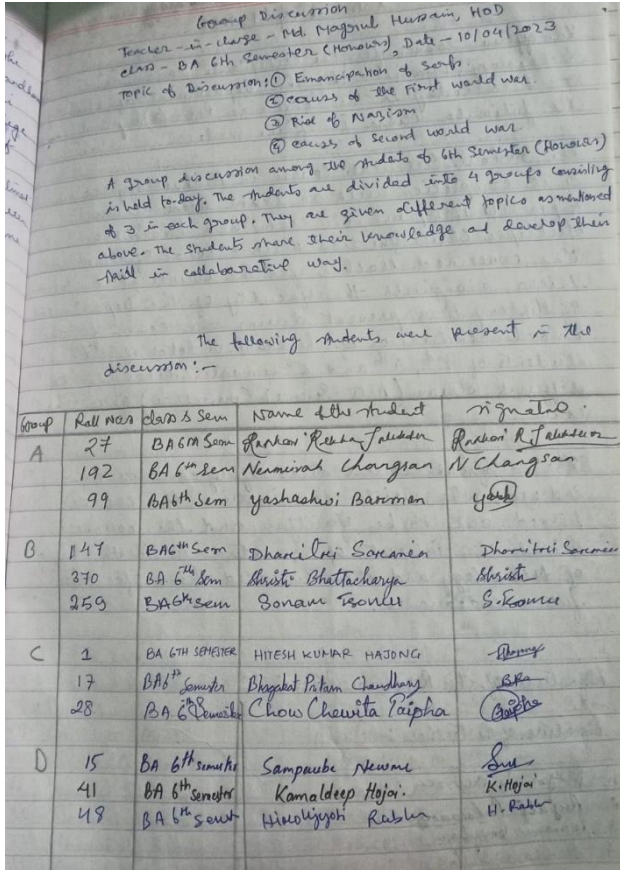 Group Discussion
Teacher-in-charge - Md. Magsul Hussain, HOD
class - BA 6th Semester (Honours), Date - 10/04/2023
Topic of Discussion: ① Emancipation of Serfs.
② causes of the First world war.
③ Rise of Nazism
④ causes of Second world war.
A group discussion among the students of 6th Semester (Honours)
is held to-day. The students are divided into 4 groups consisting
of 3 in each group. They are given different topics as mentioned
above. The students share their knowledge and develop their
skill in collaborative way.
The following students were present in the
discussion:-
Group Roll Nos class & Sem Name of the student signature.
A 27 BA 6th Sem Rekha
192 BA 6th Sem Changsan N Changsan
99 BA6th Sem Yashashwi Barman Yash
B. 147 BA6th Sem Dharitri Dharitri
370 BA 6th Sem Shristi Bhattacharya Shristi
259 BA6th Sem Sonam
C 1 BA 6TH SEMESTER HITESH KUMAR HAJONG
17 BA6th Semester Pritam Choudhary
28 BA 6th Semester Chow Chewita Taipha
D 15 BA 6th semester
41 BA 6th semester Kamaldeep Hojai. K. Hojai
48 BA 6th Rabha H. Rabha